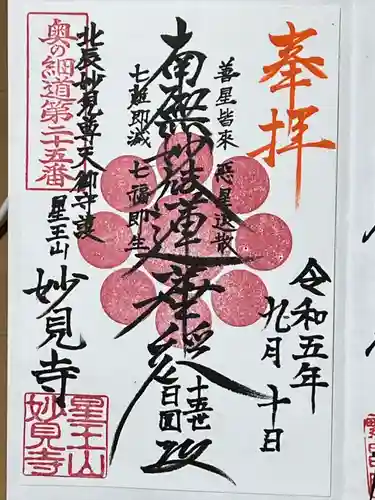 奉拝
令和五年
九月十日
善星皆來 悪星退散
南無妙法蓮華経
七難即滅 七福即生
十五世
日圓
北辰妙見尊天御守護
星王山
妙見寺
奥の細道第二十五番
星王山
妙見寺